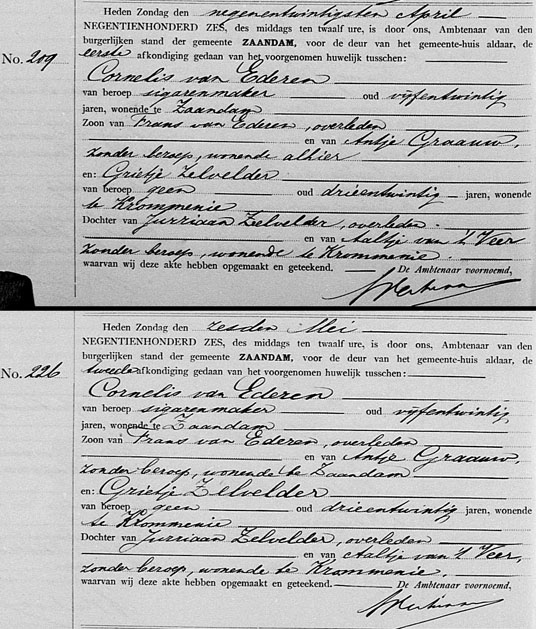 Heden Zondag den negenentwintigsten April
NEGENTIENHONDERD ZES, des middags ten twaalf ure, is door ons, Ambtenaar van den
burgerlijken stand der gemeente ZAANDAM, voor de deur van het gemeente-huis aldaar, de
No. 209 eerste afkondiging gedaan van het voorgenomen huwelijk tusschen:
Cornelis van Ederen
van beroep sigarenmaker oud vijfentwintig
jaren, wonende te Zaandam
Zoon van Frans van Ederen, overleden
en van Antje Graauw,
zonder beroep, wonende alhier
en: Grietje Zelvelder
van beroep geen oud drieentwintig jaren, wonende
te Krommenie
Dochter van Jurriaan Zelvelder, overleden
en van Aaltje van 't Veer
zonder beroep, wonende te Krommenie.
waarvan wij deze akte hebben opgemaakt en geteekend. De Ambtenaar voornoemd,
Heden Zondag den zesden Mei
NEGENTIENHONDERD ZES, des middags ten twaalf ure, is door ons, Ambtenaar van den
burgerlijken stand der gemeente ZAANDAM, voor de deur van het gemeente-huis aldaar, de
No. 226 tweede afkondiging gedaan van het voorgenomen huwelijk tusschen:
Cornelis van Ederen
van beroep sigarenmaker oud vijfentwintig
jaren, wonende te Zaandam
Zoon van Frans van Ederen, overleden
en van Antje Graauw,
zonder beroep, wonende te Zaandam
en: Grietje Zelvelder
van beroep geen oud drieentwintig jaren, wonende
te Krommenie
Dochter van Jurriaan Zelvelder, overleden
en van Aaltje van 't Veer,
zonder beroep, wonende te Krommenie,
waarvan wij deze akte hebben opgemaakt en geteekend. De Ambtenaar voornoemd,